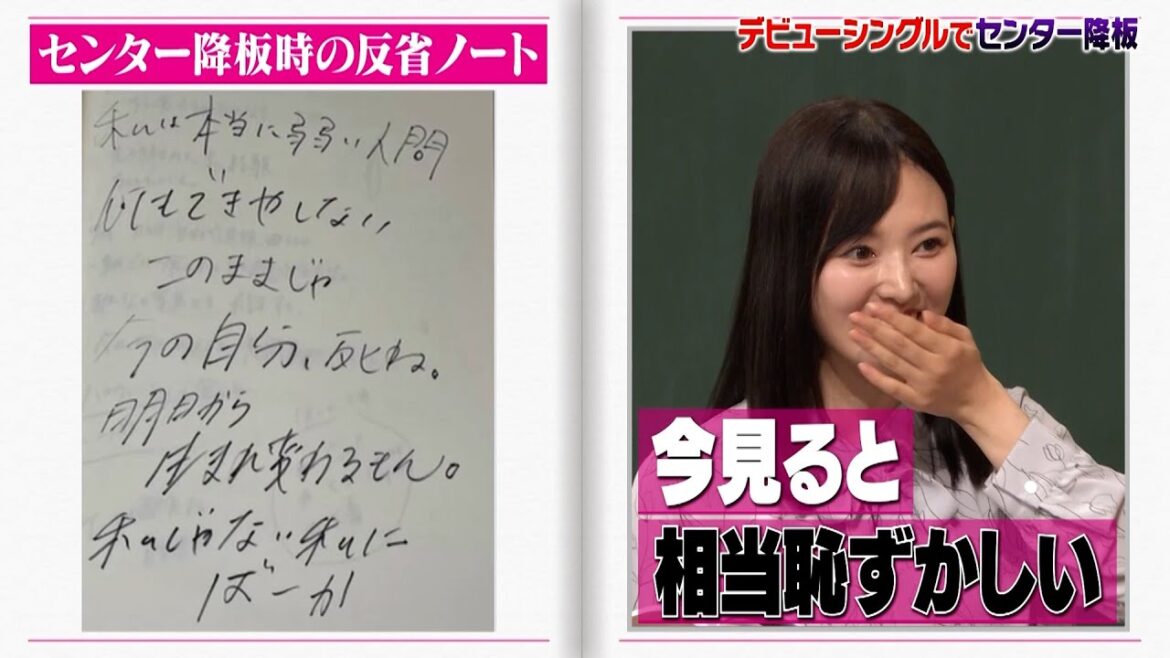 センター降板時の反省ノート
私は本当に弱い人間
何もできやしない
このままじゃ
今の自分、死ね。
明日から
生まれ変わるもん。
私じゃない私に
ばーか
デビューシングルでセンター降板
今見ると
相当恥ずかしい